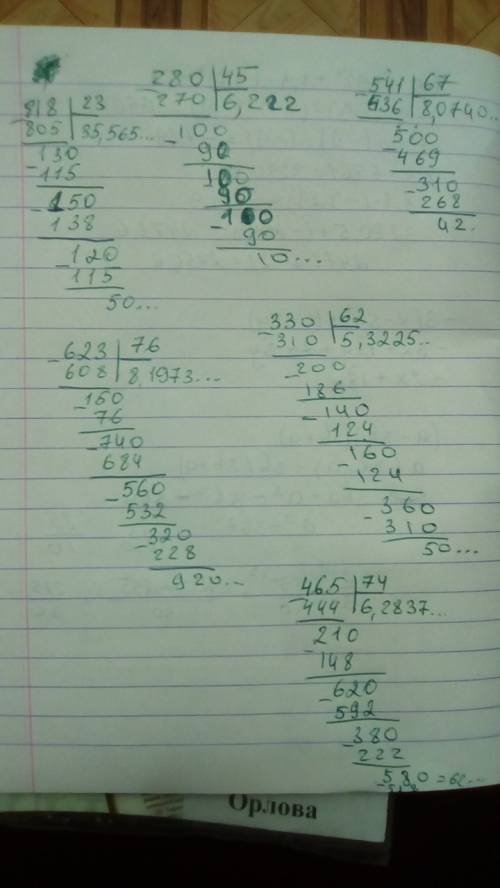 818 | 23
- 805 | 35,565...
130
- 115
150
- 138
120
- 115
50...
280 | 45
- 270 | 6,222
100
- 90
100
90
- 100
90
10...
541 | 67
- 536 | 8,0740...
500
- 469
- 310
268
42.
- 623 | 76
608 | 8,1973...
- 160
76
- 740
684
- 560
532
- 320
228
920...
- 330 | 62
310 | 5,3225..
- 200
186
- 140
124
- 160
124
- 360
310
50...
- 465 | 74
444 | 6,2837...
210
- 148
- 620
592
- 380
222
- 580 = 62...
Орлова